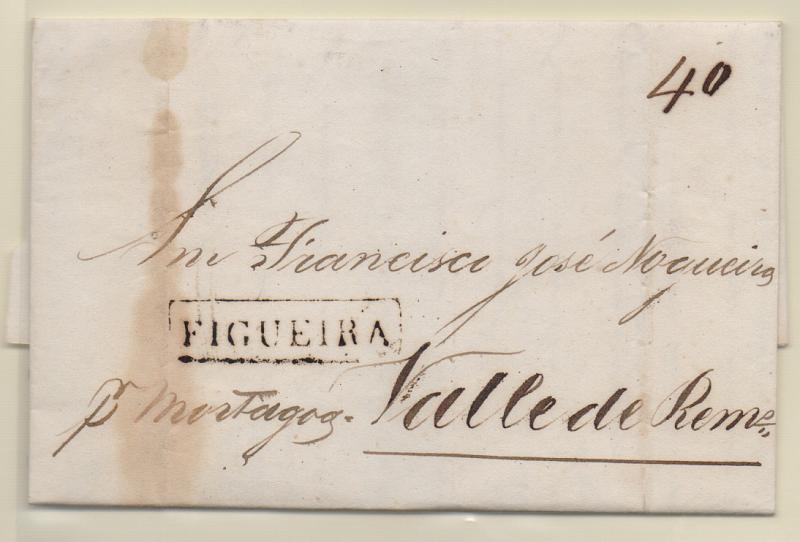 40
Snr Francisco José Nogueira
FIGUEIRA
pr Mortagoa. Valle de Reme